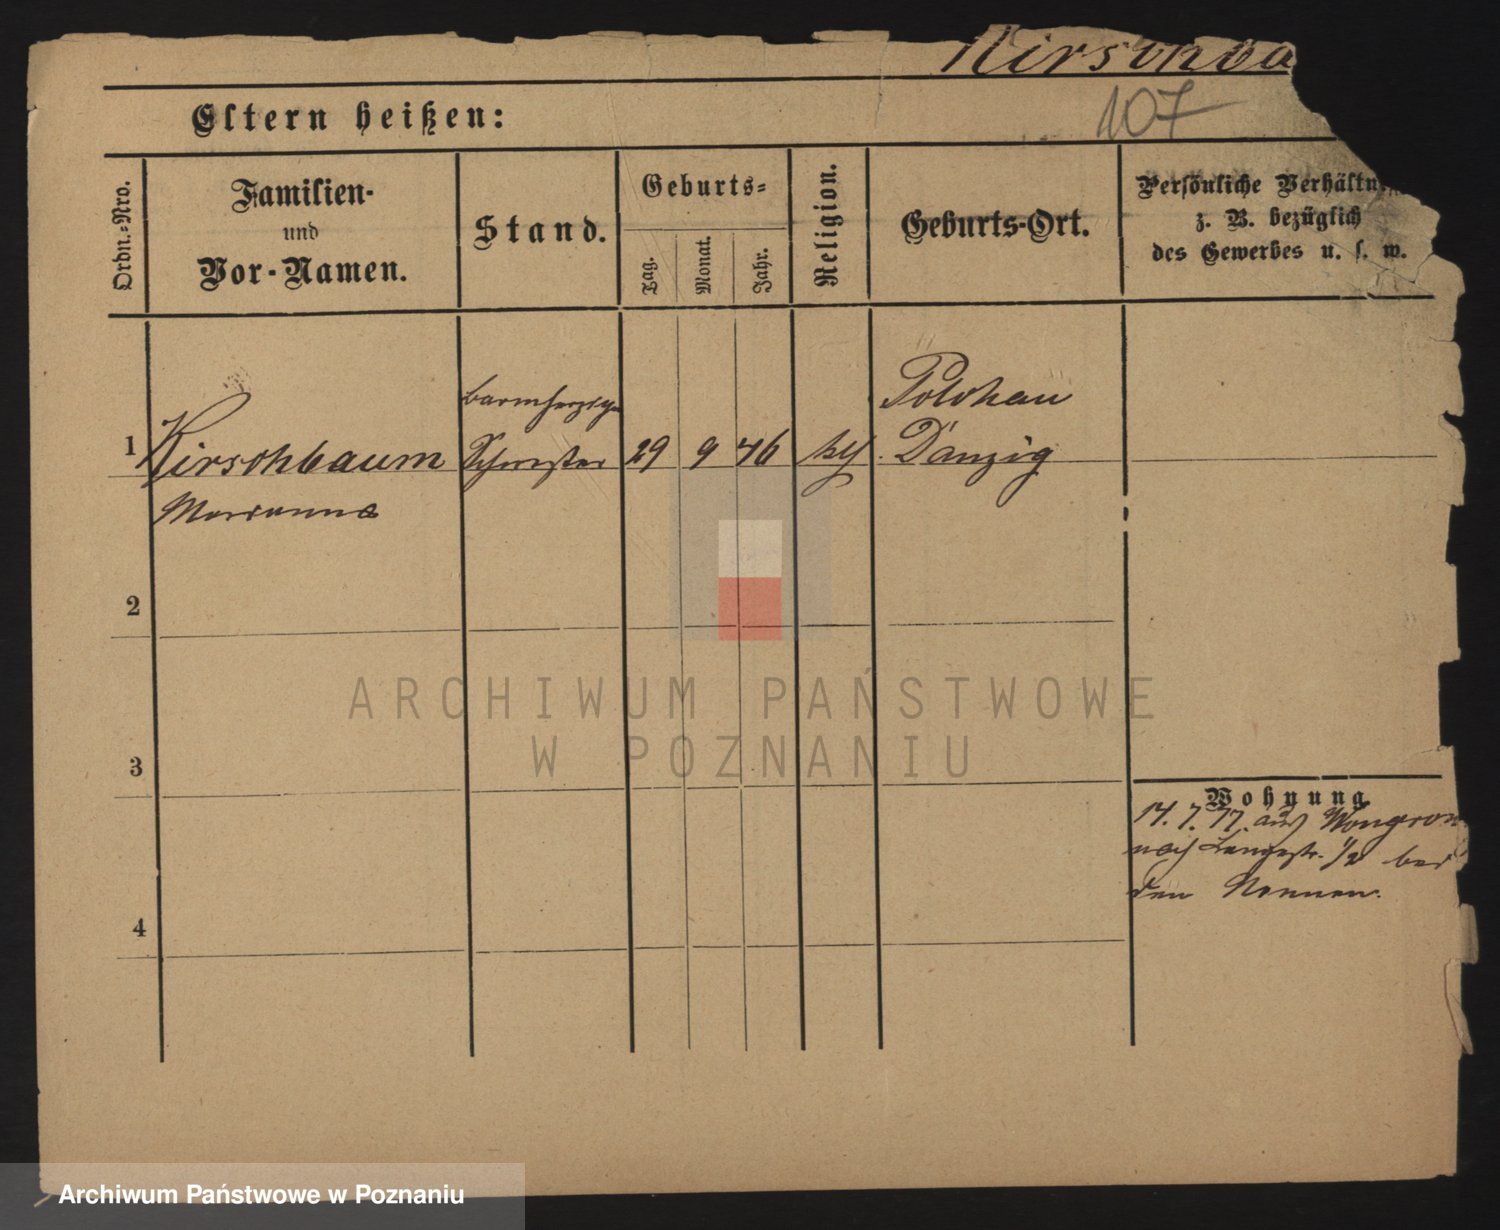 Kirschba
107
Eltern heißen:
Ordn.-Nro.
Familien-
und
Vor-Namen.
Stand.
Geburts-
Tag.
Monat.
Jahr.
Religion.
Geburts-Ort.
Persönliche Verhältn
z. B. bezüglich
des Gewerbes u. s. w.
1
Kirschbaum
Marianna
barmherzige
Schwester
29
9
46
kth
Danzig
2
3
4
Wohnung
14. 7. 77. aus Wongrow
nach Langestr. 1/2 bei
den Nonnen.
ARCHIWUM PAŃSTWOWE
W POZNANIU
Archiwum Państwowe w Poznaniu